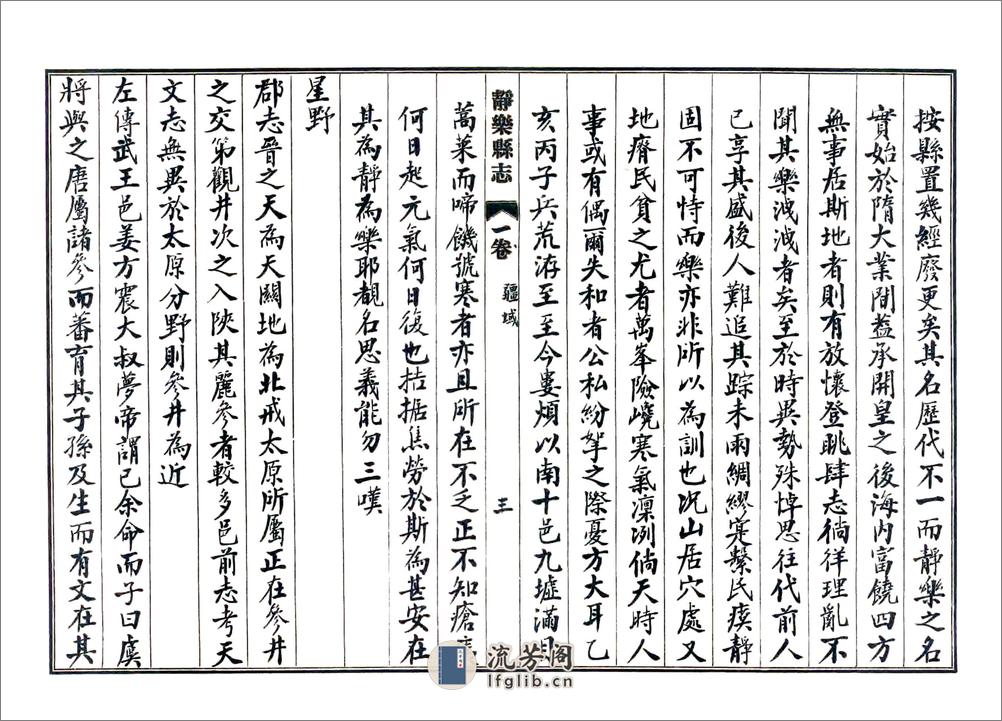 按縣置幾經廢更矣其名歷代不一而靜樂之名
實始於隋大業間蓋承開皇之後海內富饒四方
無事居斯地者則有放懷登眺肆志徜徉理亂不
聞其樂洩洩者矣至於時異勢殊悼思往代前人
已享其盛後人難追其踪未雨綢繆寔繫民瘼靜
固不可恃而樂亦非所以為訓也况山居穴處又
地瘠民貧之尤者萬峯險嶢寒氣凜冽倘天時人
事或有偶爾失和者公私紛拏之際憂方大耳乙
亥丙子兵荒洊至至今婁煩以南十邑九墟滿目
靜樂縣志 一卷 疆域 三
蒿萊而啼饑號寒者亦且所在不乏正不知瘡
何日起元氣何日復也拮据焦勞於斯為甚安在
其為靜為樂耶覩名思義能勿三嘆
星野
郡志晉之天為天關地為北戒太原所屬正在參井
之交第觀井次之入陝其麗參者較多邑前志考天
文志無異於太原分野則參井為近
左傳武王邑姜方震大叔夢帝謂已余命而子曰虞
將與之唐屬諸參而蕃育其子孫及生而有文在其
流芳阁
lfglib.cn